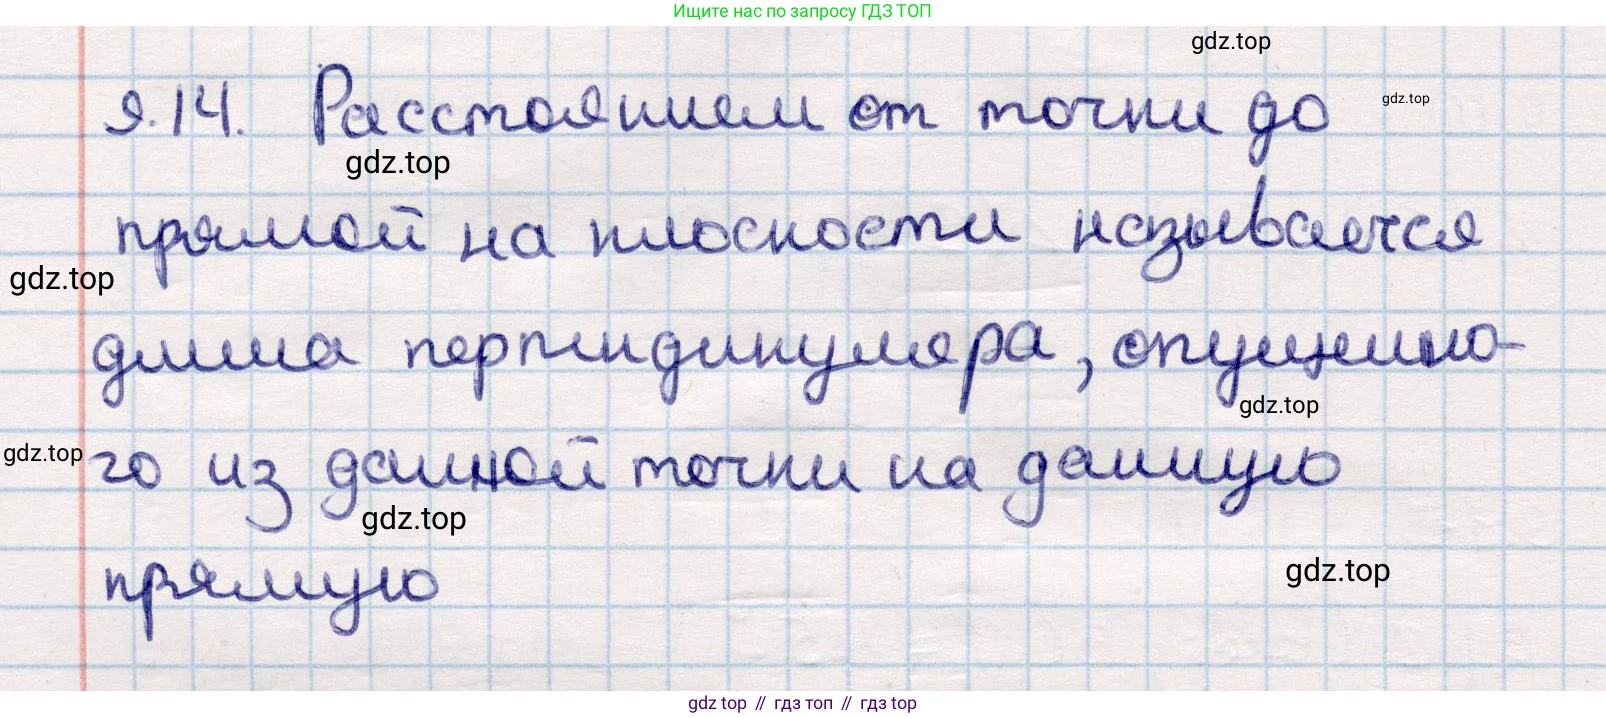 Ищите нас по запросу ГДЗ ТОП
gdz.top
9.14. Расстоянием от точки до
gdz.top
gdz.top
прямой на плоскости называется
gdz.top
длина перпендикуляра, опущенно-
gdz.top
gdz.top
го из данной точки на данную
gdz.top
прямую
gdz.top
gdz top // гдз топ // gdz top